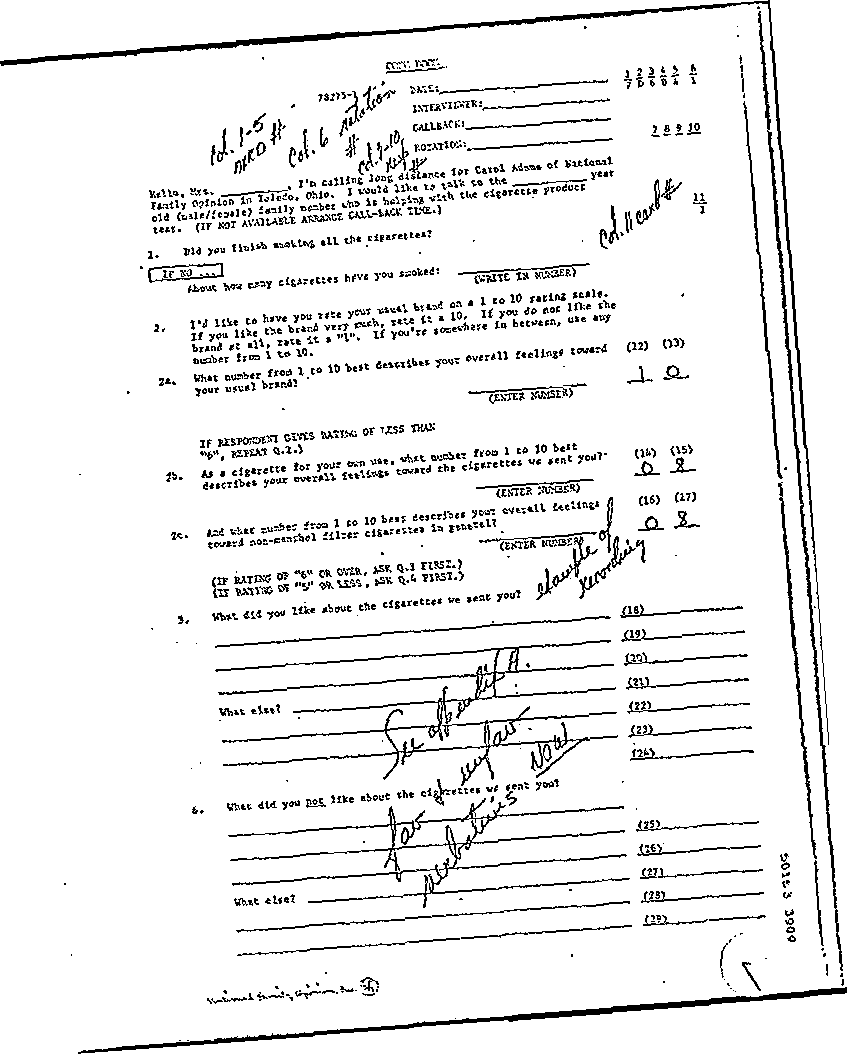 CODE BOOK
78275-
DATE:
1 2 3 4 5 6
7 0 6 0 4 1
INTERVIEWER:
CALLBACK:
ROTATION:
7 8 9 10
Col. 1-5
Col. 6 Rotation
#
Col. 7-10
Hello, Mrs. , I'm calling long distance for Carol Adams of National
Family Opinion in Toledo, Ohio. I would like to talk to the year
old (male/female) family member who is helping with the cigarette product
test. (IF NOT AVAILABLE ARRANGE CALL-BACK TIME.)
Col. 11 card #
11
1
1. Did you finish smoking all the cigarettes?
IF NO ...
About how many cigarettes have you smoked:
(WRITE IN NUMBER)
2. I'd like to have you rate your usual brand on a 1 to 10 rating scale.
If you like the brand very much, rate it a 10. If you do not like the
brand at all, rate it a "1". If you're somewhere in between, use any
number from 1 to 10.
2a. What number from 1 to 10 best describes your overall feelings toward
your usual brand?
(12) (13)
1 0
(ENTER NUMBER)
IF RESPONDENT GIVES RATING OF LESS THAN
"6", REPEAT Q.2.)
2b. As a cigarette for your own use, what number from 1 to 10 best
describes your overall feelings toward the cigarettes we sent you?
(14) (15)
0 8
(ENTER NUMBER)
2c. And what number from 1 to 10 best describes your overall feelings
toward non-menthol filter cigarettes in general?
(16) (17)
0 8
(ENTER NUMBER)
example of
recording
(IF RATING OF "6" OR OVER, ASK Q.3 FIRST.)
(IF RATING OF "5" OR LESS, ASK Q.4 FIRST.)
3. What did you like about the cigarettes we sent you?
(18)
(19)
(20)
(21)
What else?
(22)
(23)
(24)
See appendix A.
fav & unfav
4. What did you not like about the cigarettes we sent you?
fav
verbatims
(25)
(26)
(27)
What else?
(28)
(29)
50153 3909
National Family Opinion, Inc.